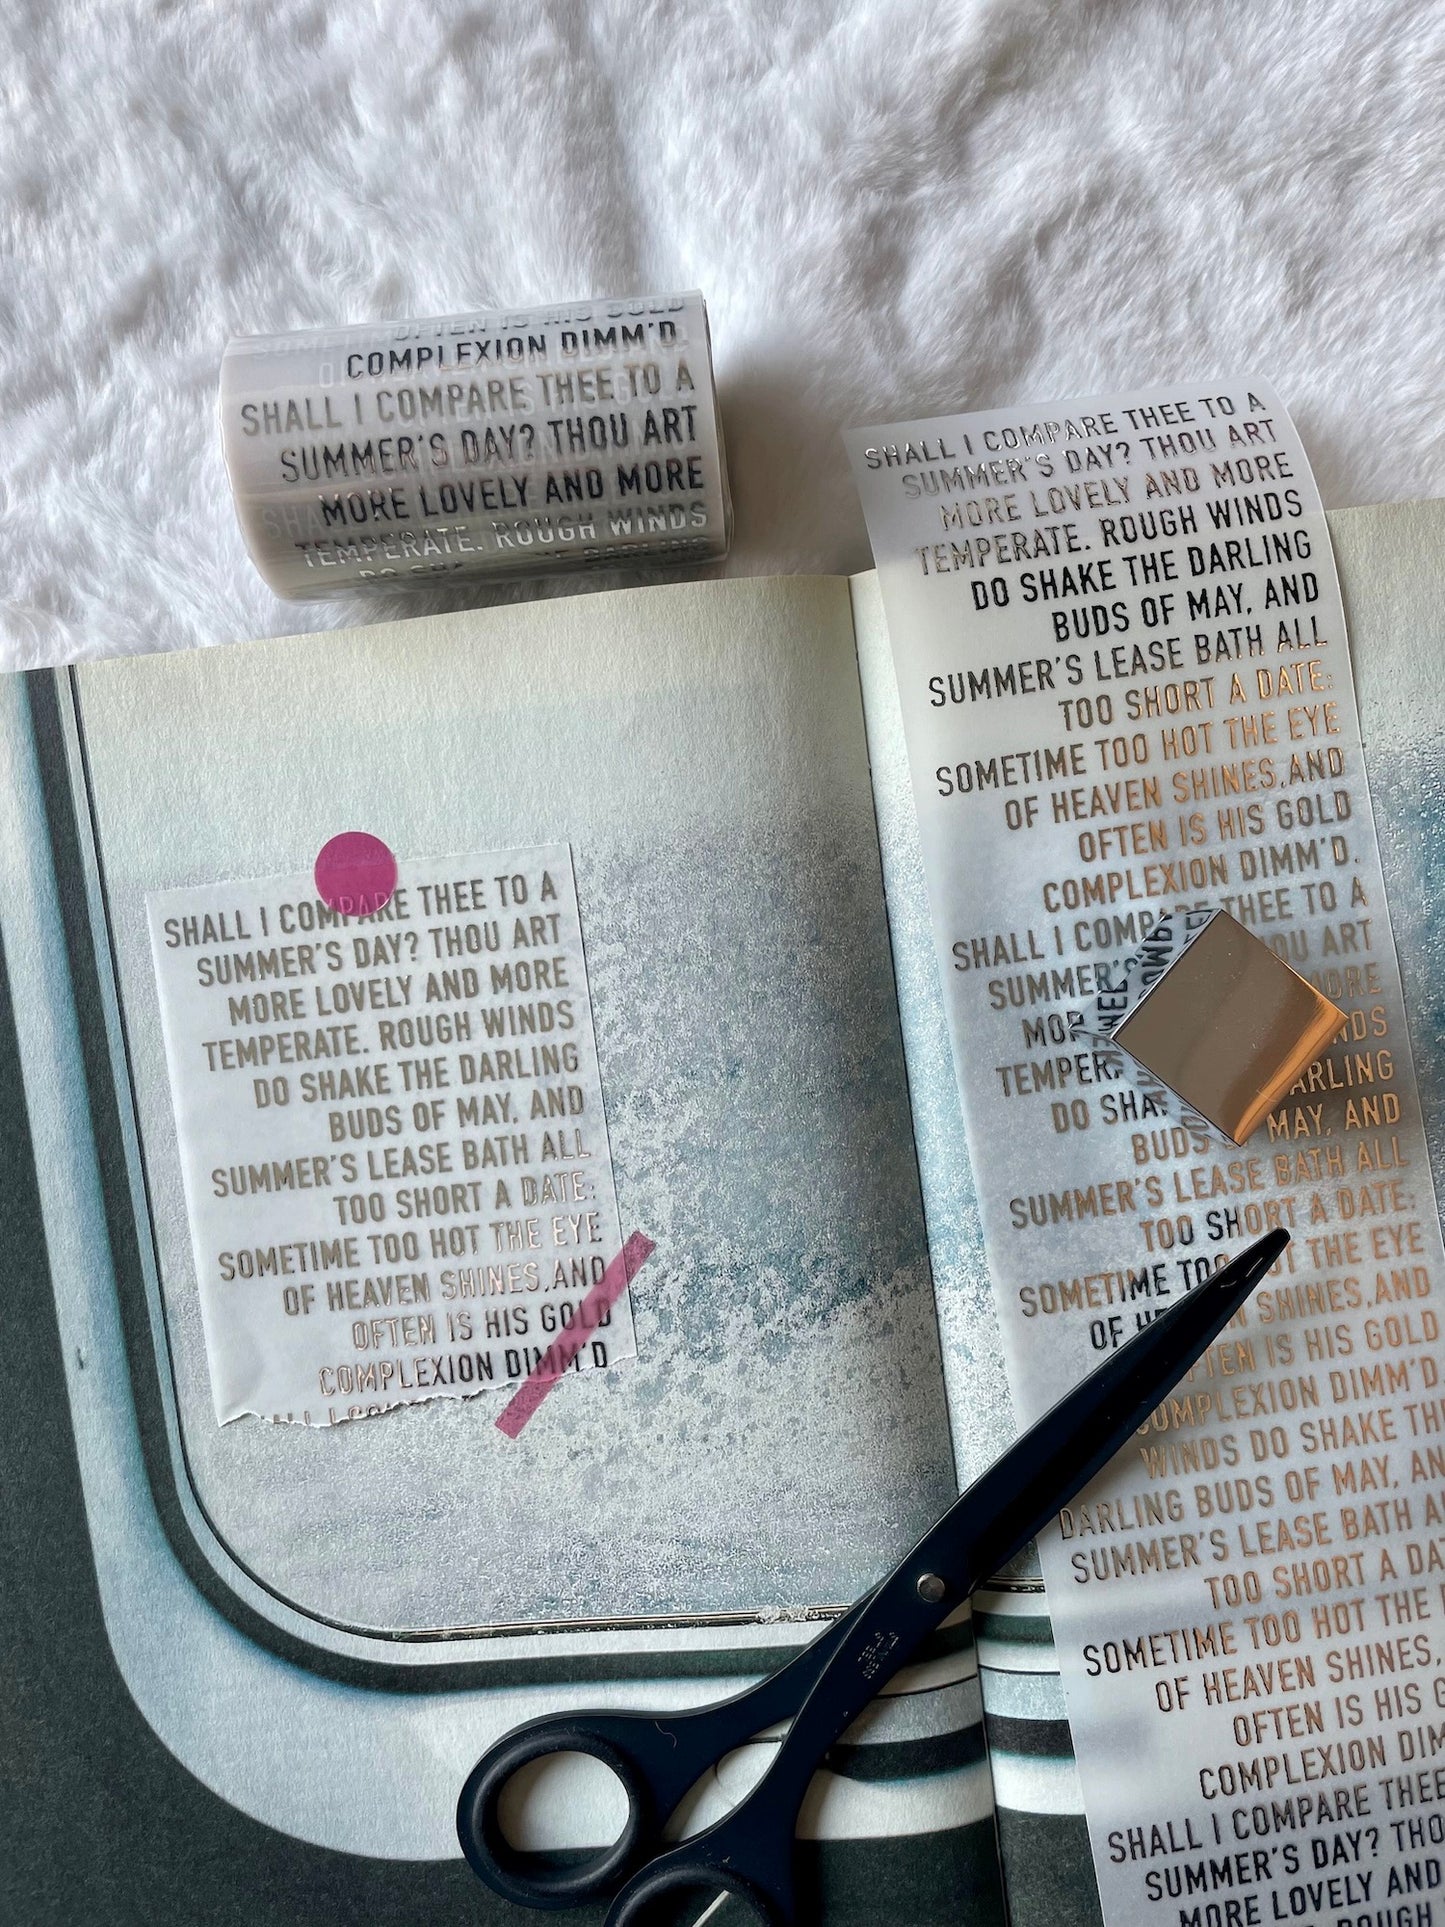 OFTEN IS HIS GOLD
COMPLEXION DIMM'D.
SHALL I COMPARE THEE TO A
SUMMER'S DAY? THOU ART
MORE LOVELY AND MORE
TEMPERATE. ROUGH WINDS
DARLING
SHALL I COMPARE THEE TO A
SUMMER'S DAY? THOU ART
MORE LOVELY AND MORE
TEMPERATE. ROUGH WINDS
DO SHAKE THE DARLING
BUDS OF MAY, AND
SUMMER'S LEASE BATH ALL
TOO SHORT A DATE:
SOMETIME TOO HOT THE EYE
OF HEAVEN SHINES,AND
OFTEN IS HIS GOLD
COMPLEXION DIMM'D
SHALL I COMPARE THEE TO A
SUMMER'S DAY? THOU ART
MORE LOVELY AND MORE
TEMPERATE. ROUGH WINDS
DO SHAKE THE DARLING
BUDS OF MAY, AND
SUMMER'S LEASE BATH ALL
TOO SHORT A DATE:
SOMETIME TOO HOT THE EYE
OF HEAVEN SHINES,AND
OFTEN IS HIS GOLD
COMPLEXION DIMM'D.
SHALL I COMPARE THEE TO A
SUMMER'S ART
MORE
DO DARLING
BUDS MAY, AND
SUMMER'S LEASE BATH ALL
TOO SHORT A DATE:
SOMETIME TOO HOT THE EYE
OF SHINES,AND
OFTEN IS HIS GOLD
COMPLEXION DIMM'D
WINDS DO SHAKE
DARLING BUDS OF MAY,
SUMMER'S LEASE BATH
TOO SHORT A
SOMETIME TOO HOT THE
OF HEAVEN SHINES,
OFTEN IS HIS
COMPLEXION
SHALL I COMPARE THEE
SUMMER'S DAY?
MORE LOVELY AND